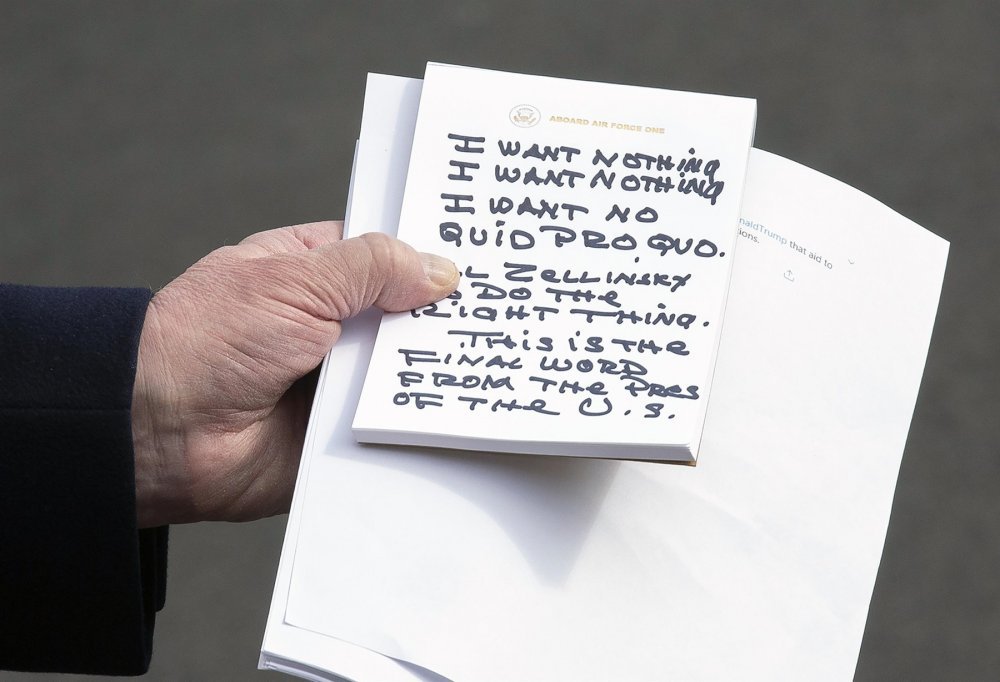 ABOARD AIR FORCE ONE
I WANT NOTHING
I WANT NOTHING
I WANT NO
QUID PRO QUO.
L ZELLINSKY
O DO THE
RIGHT THING.
THIS IS THE
FINAL WORD
FROM THE PRES
OF THE U.S.
naldTrump that aid to
ions.